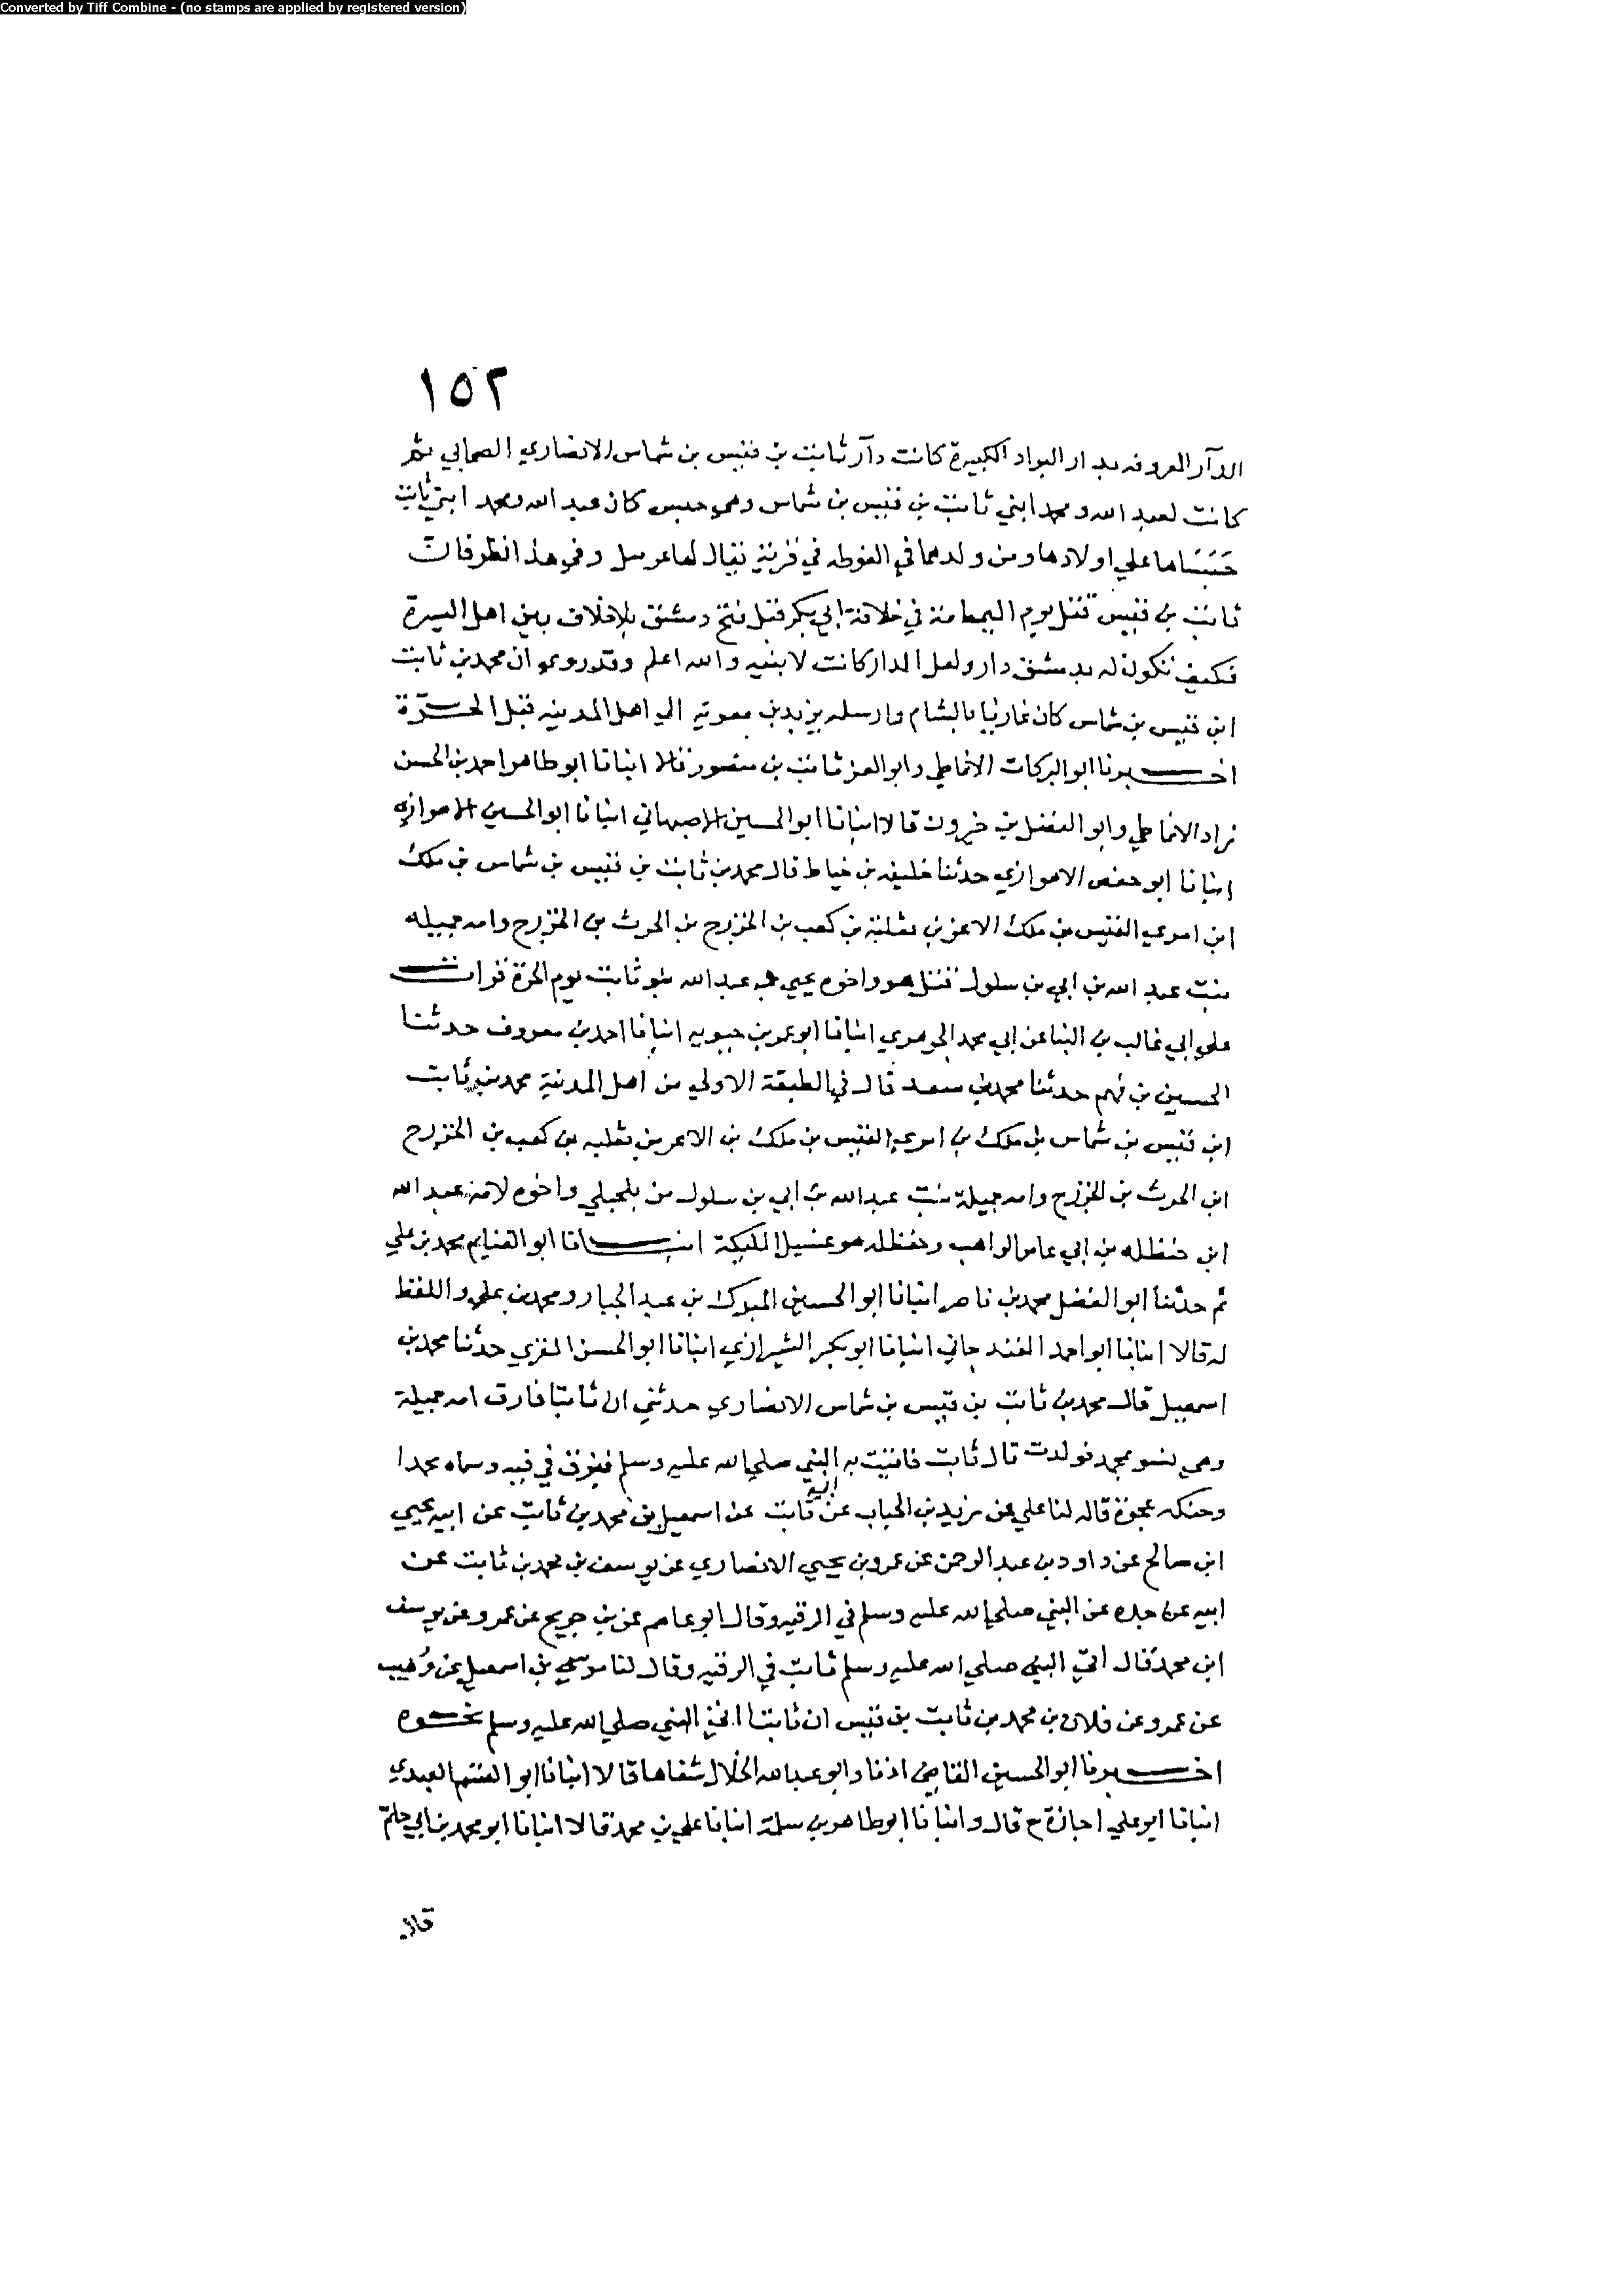 Converted by Tiff Combine - (no stamps are applied by registered version)
١٥٢
الدآر المعروفه بدار البواد الكبيرة كانت دآر ثابت بن قيس بن شماس الانصاري الصحابي ثم
كانت لعبد الله ومحمد ابني ثابت بن قيس بن شماس وهي حبس كان عبد الله ومحمد ابني ثابت
حبساها علي اولادهما ومن ولدهما في الغوطه في قرية يقال لها وفي هذا نظر فان
ثابت بن قيس قتل يوم اليمامة في خلافة ابي بكر قبل فتح دمشق بلا خلاف بين اهل السيرة
فكيف تكون له بدمشق دار ولعل الدار كانت لابنيه والله اعلم وقد روي ان محمد بن ثابت
ابن قيس بن شماس كان غازيا بالشام وارسله يزيد بن معوية الي اهل المدينه قبل الحرّة
اخبرنا ابو البركات الانماطي وابو العز ثابت بن منصور قالا انبانا ابو طاهر احمد بن الحسن
زاد الانماطي وابو الفضل بن خيرون قالا انبانا ابو الحسين الاصبهاني انبانا ابو الحسين الاهوازي
انبانا ابو حفص الاهوازي حدثنا خليفه بن خياط قال محمد بن ثابت بن قيس بن شماس بن ملك
ابن امري القيس بن ملك الاغر بن ثعلبة بن كعب بن الخزرج بن الحرث بن الخزرج وامه جميله
بنت عبد الله بن ابي بن سلول قتل هو واخوه يحيي عبد الله بنو ثابت يوم الحرة قرات
علي ابي غالب بن البنا عن ابي محمد الجوهري انبانا ابو عمر بن حيويه انبانا احمد بن معروف حدثنا
الحسين بن فهم حدثنا محمد بن سعد قال في الطبقة الاولي من اهل المدينة محمد بن ثابت
ابن قيس بن شماس بن ملك بن امري القيس بن ملك بن الاغر بن ثعلبه بن كعب بن الخزرج
ابن الحرث بن الخزرج وامه جميلة بنت عبد الله بن ابي بن سلول من بلحبلي واخوه لامه عبد الله
ابن حنظله بن ابي عامر الراهب وحنظله هو غسيل المليكة انبانا ابو الغنايم محمد بن علي
ثم حدثنا ابو الفضل محمد بن ناصر انبانا ابو الحسين المبرك بن عبد الجبار ومحمد بن علي واللفظ
له قالا انبانا ابو احمد الغندجاني انبانا ابو بكر الشيرازي انبانا ابو الحسن المقري حدثنا محمد بن
اسمعيل قال محمد بن ثابت بن قيس بن شماس الانصاري حدثني ان ثابتا فارق امه جميلة
وهي نسو بمحمد فولدت قال ثابت فاتيت به النبي صلي الله عليه وسلم فبزق في فيه وسماه محمدا
وحنكه بعجوة قاله لنا علي عن زيد بن الحباب عن ابي ثابت عن اسمعيل بن محمد بن ثابت عن ابيه يحيي
ابن صالح عن داود بن عبد الرحمن عن عمرو بن يحيي الانصاري عن يوسف بن محمد بن ثابت عن
ابيه عن جده عن النبي صلي الله عليه وسلم في الرقيه وقال ابو عاصم عن بن جريج عن عمرو عن يوسف
ابن محمد قال اتي النبي صلي الله عليه وسلم ثابت في الرقيه وقال لنا موسي بن اسمعيل عن وُهيب
عن عمرو عن فلان بن محمد بن ثابت بن قيس ان ثابتا اتي النبي صلي الله عليه وسلم نحوه
اخبرنا ابو الحسين القاضي اذنا وابو عبد الله الخلال شفاها قالا انبانا ابو القسم العبدي
انبانا ابو علي اجازة ح قال وانبانا ابو طاهر بن سلمة انبانا علي بن محمد قالا انبانا ابو محمد بن ابي حاتم
قال